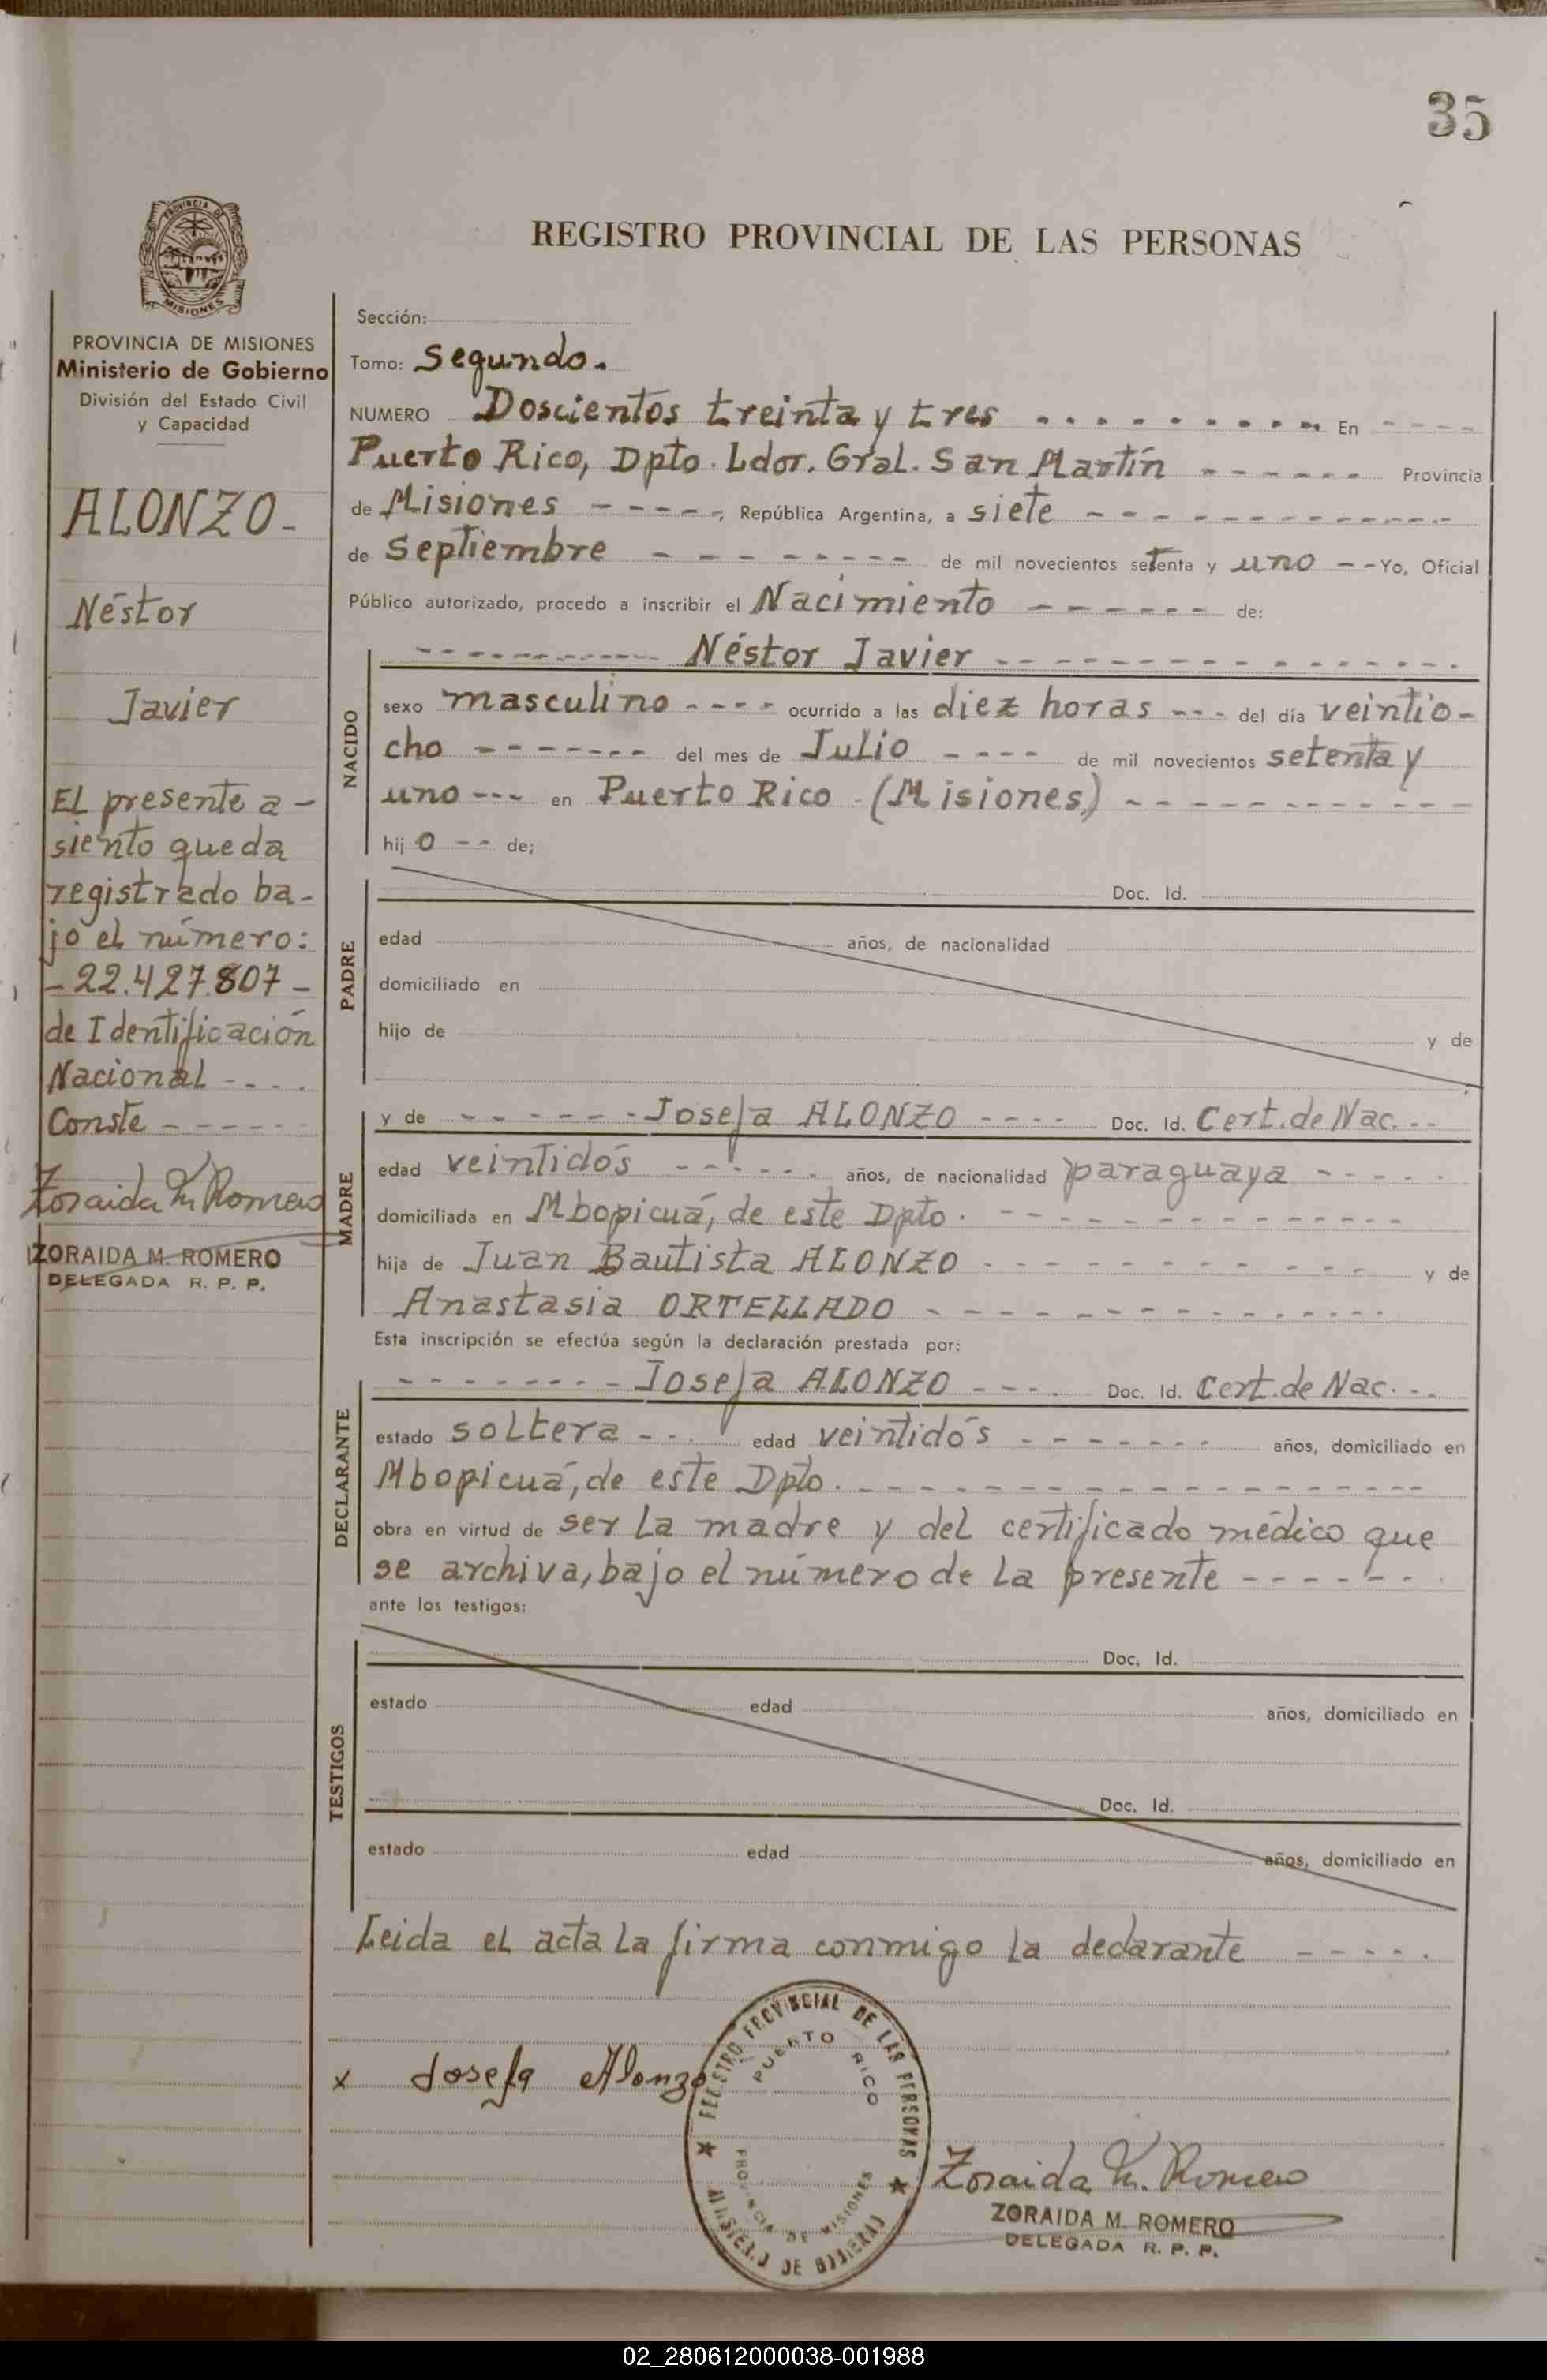 35
REGISTRO PROVINCIAL DE LAS PERSONAS
PROVINCIA DE
MISIONES
PROVINCIA DE MISIONES
Ministerio de Gobierno
División del Estado Civil
y Capacidad
ALONZO-
Néstor
Javier
El presente a-
siento queda
registrado ba-
jo el número:
-22.427.807-
de Identificación
Nacional - - - -
Conste - - - - -
Zoraida M. Romero
ZORAIDA M. ROMERO
DELEGADA R. P. P.
Sección:
Tomo: Segundo.
NUMERO Doscientos treinta y tres - - - - - - - - - - En - - - -
Puerto Rico, Dpto. Ldor. Gral. San Martín - - - - - - Provincia
de Misiones - - - - -, República Argentina, a siete - - - - - - - - - - - -
de Septiembre - - - - - - - - - de mil novecientos setenta y uno - - Yo, Oficial
Público autorizado, procedo a inscribir el Nacimiento - - - - - - de:
- - - - - - - - - - - Néstor Javier - - - - - - - - - - - - - - -
NACIDO
sexo masculino - - - - ocurrido a las diez horas - - - del día veintio-
cho - - - - - - - del mes de Julio - - - - de mil novecientos setenta y
uno - - - en Puerto Rico - (Misiones) - - - - - - - - - - - -
hij o - - de;
PADRE
Doc. Id.
edad años, de nacionalidad
domiciliado en
hijo de y de
MADRE
y de - - - - - - - Josefa ALONZO - - - - Doc. Id. Cert. de Nac. - -
edad veintidós - - - - - - años, de nacionalidad paraguaya - - - - -
domiciliada en Mbopicuá, de este Dpto. - - - - - - - - - - - -
hija de Juan Bautista ALONZO - - - - - - - - - - - y de
Anastasia ORTELLADO - - - - - - - - - - - - -
Esta inscripción se efectúa según la declaración prestada por:
DECLARANTE
- - - - - - - - Josefa ALONZO - - - - Doc. Id. Cert. de Nac. - -
estado soltera - - - edad veintidós - - - - - - - años, domiciliado en
Mbopicuá, de este Dpto. - - - - - - - - - - - - - - - - -
obra en virtud de ser la madre y del certificado médico que
se archiva, bajo el número de la presente - - - - - - -
ante los testigos:
TESTIGOS
Doc. Id.
estado edad años, domiciliado en
Doc. Id.
estado edad años, domiciliado en
Leida el acta la firma conmigo la declarante - - - - -
x Josefa Alonzo
REGISTRO PROVINCIAL DE LAS PERSONAS
PUERTO RICO
PROVINCIA DE MISIONES
MINISTERIO DE GOBIERNO
Zoraida M. Romero
ZORAIDA M. ROMERO
DELEGADA R. P. P.
02_280612000038-001988